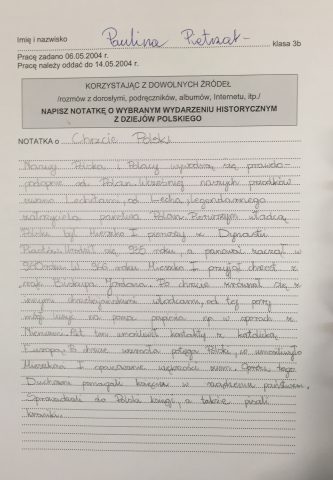 Imię i nazwisko Paulina Pietrzak klasa 3b
Pracę zadano 06.05.2004 r.
Pracę należy oddać do 14.05.2004 r.
KORZYSTAJĄC Z DOWOLNYCH ŹRÓDEŁ
/rozmów z dorosłymi, podręczników, albumów, Internetu, itp./
NAPISZ NOTATKĘ O WYBRANYM WYDARZENIU HISTORYCZNYM
Z DZIEJÓW POLSKIEGO
NOTATKA o Chrzcie Polski
Nazwy Polska i Polacy wywodzą się prawdo-
podobnie od Polan. Wcześniej naszych przodków
zwano Lechitami, od Lecha, legendarnego
założyciela państwa Polan. Pierwszym władcą
Polski był Mieszko I pierwszy z Dynastii
Piastów. Urodził się 935 roku, a panować zaczął w
960 roku. W 966 roku Mieszko I przyjął chrzest z
rąk Biskupa Jordana. Po chrzcie zrównał się z
innymi chrześcijańskimi władcami, od tej pory
mógł liczyć na pomoc papieża np. w sporach z
Niemcami. Akt ten umożliwił kontakty z katolicką
Europą. Po chrzcie wzrosła potęga Polski, co umożliwiło
Mieszkowi I opanowanie większości ziem. Oprócz tego
Duchowni pomagali księciu w rządzeniu państwem.
Sprowadzali do Polski księgi, a także pisali
kroniki.